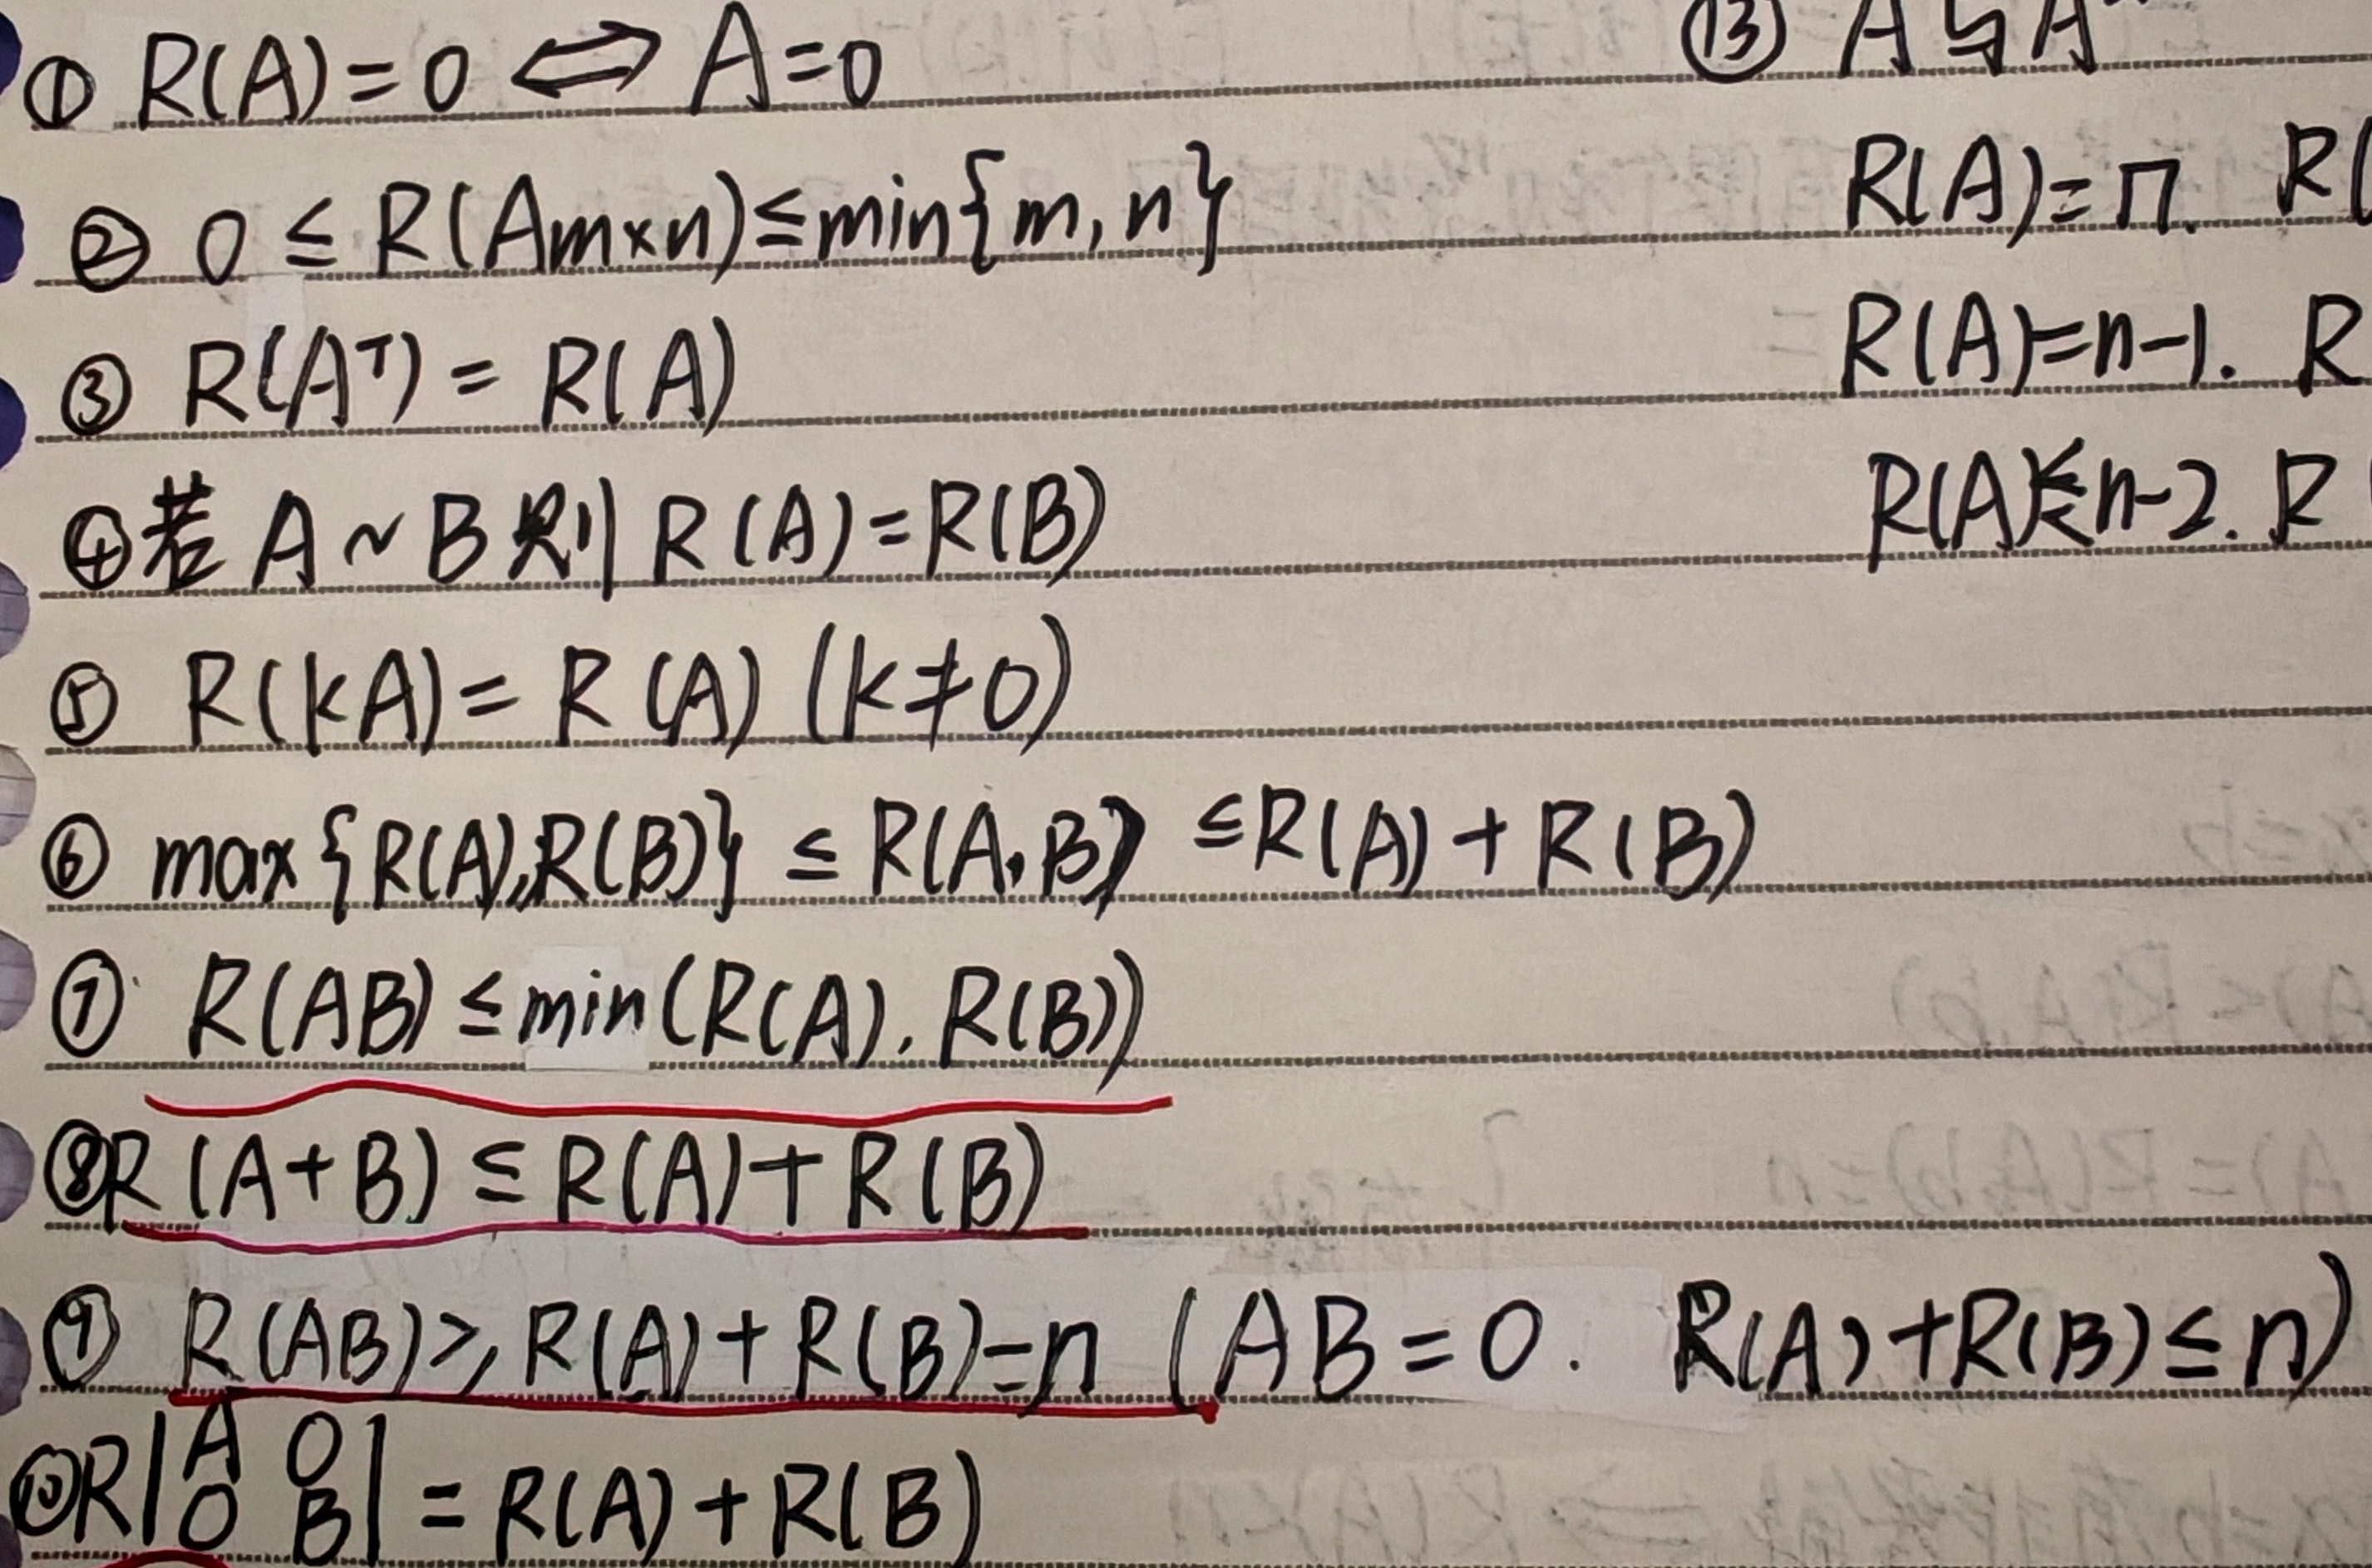 ① R(A)=0 ⟺ A=0
② 0 ≤ R(Am×n)≤min{m,n}
③ R(Aᵀ) = R(A)
④若 A~B则 R(A)=R(B)
⑤ R(kA)= R(A) (k≠0)
⑥ max{R(A),R(B)} ≤ R(A,B) ≤R(A)+R(B)
⑦ R(AB) ≤min(R(A),R(B))
⑧R(A+B) ≤ R(A)+R(B)
⑨ R(AB)≥R(A)+R(B)-n (AB=0. R(A)+R(B)≤n)
⑩R|A 0
0 B| = R(A)+R(B)
⑬ A与A*
R(A)=n. R(
R(A)=n-1. R
R(A)≤n-2. R